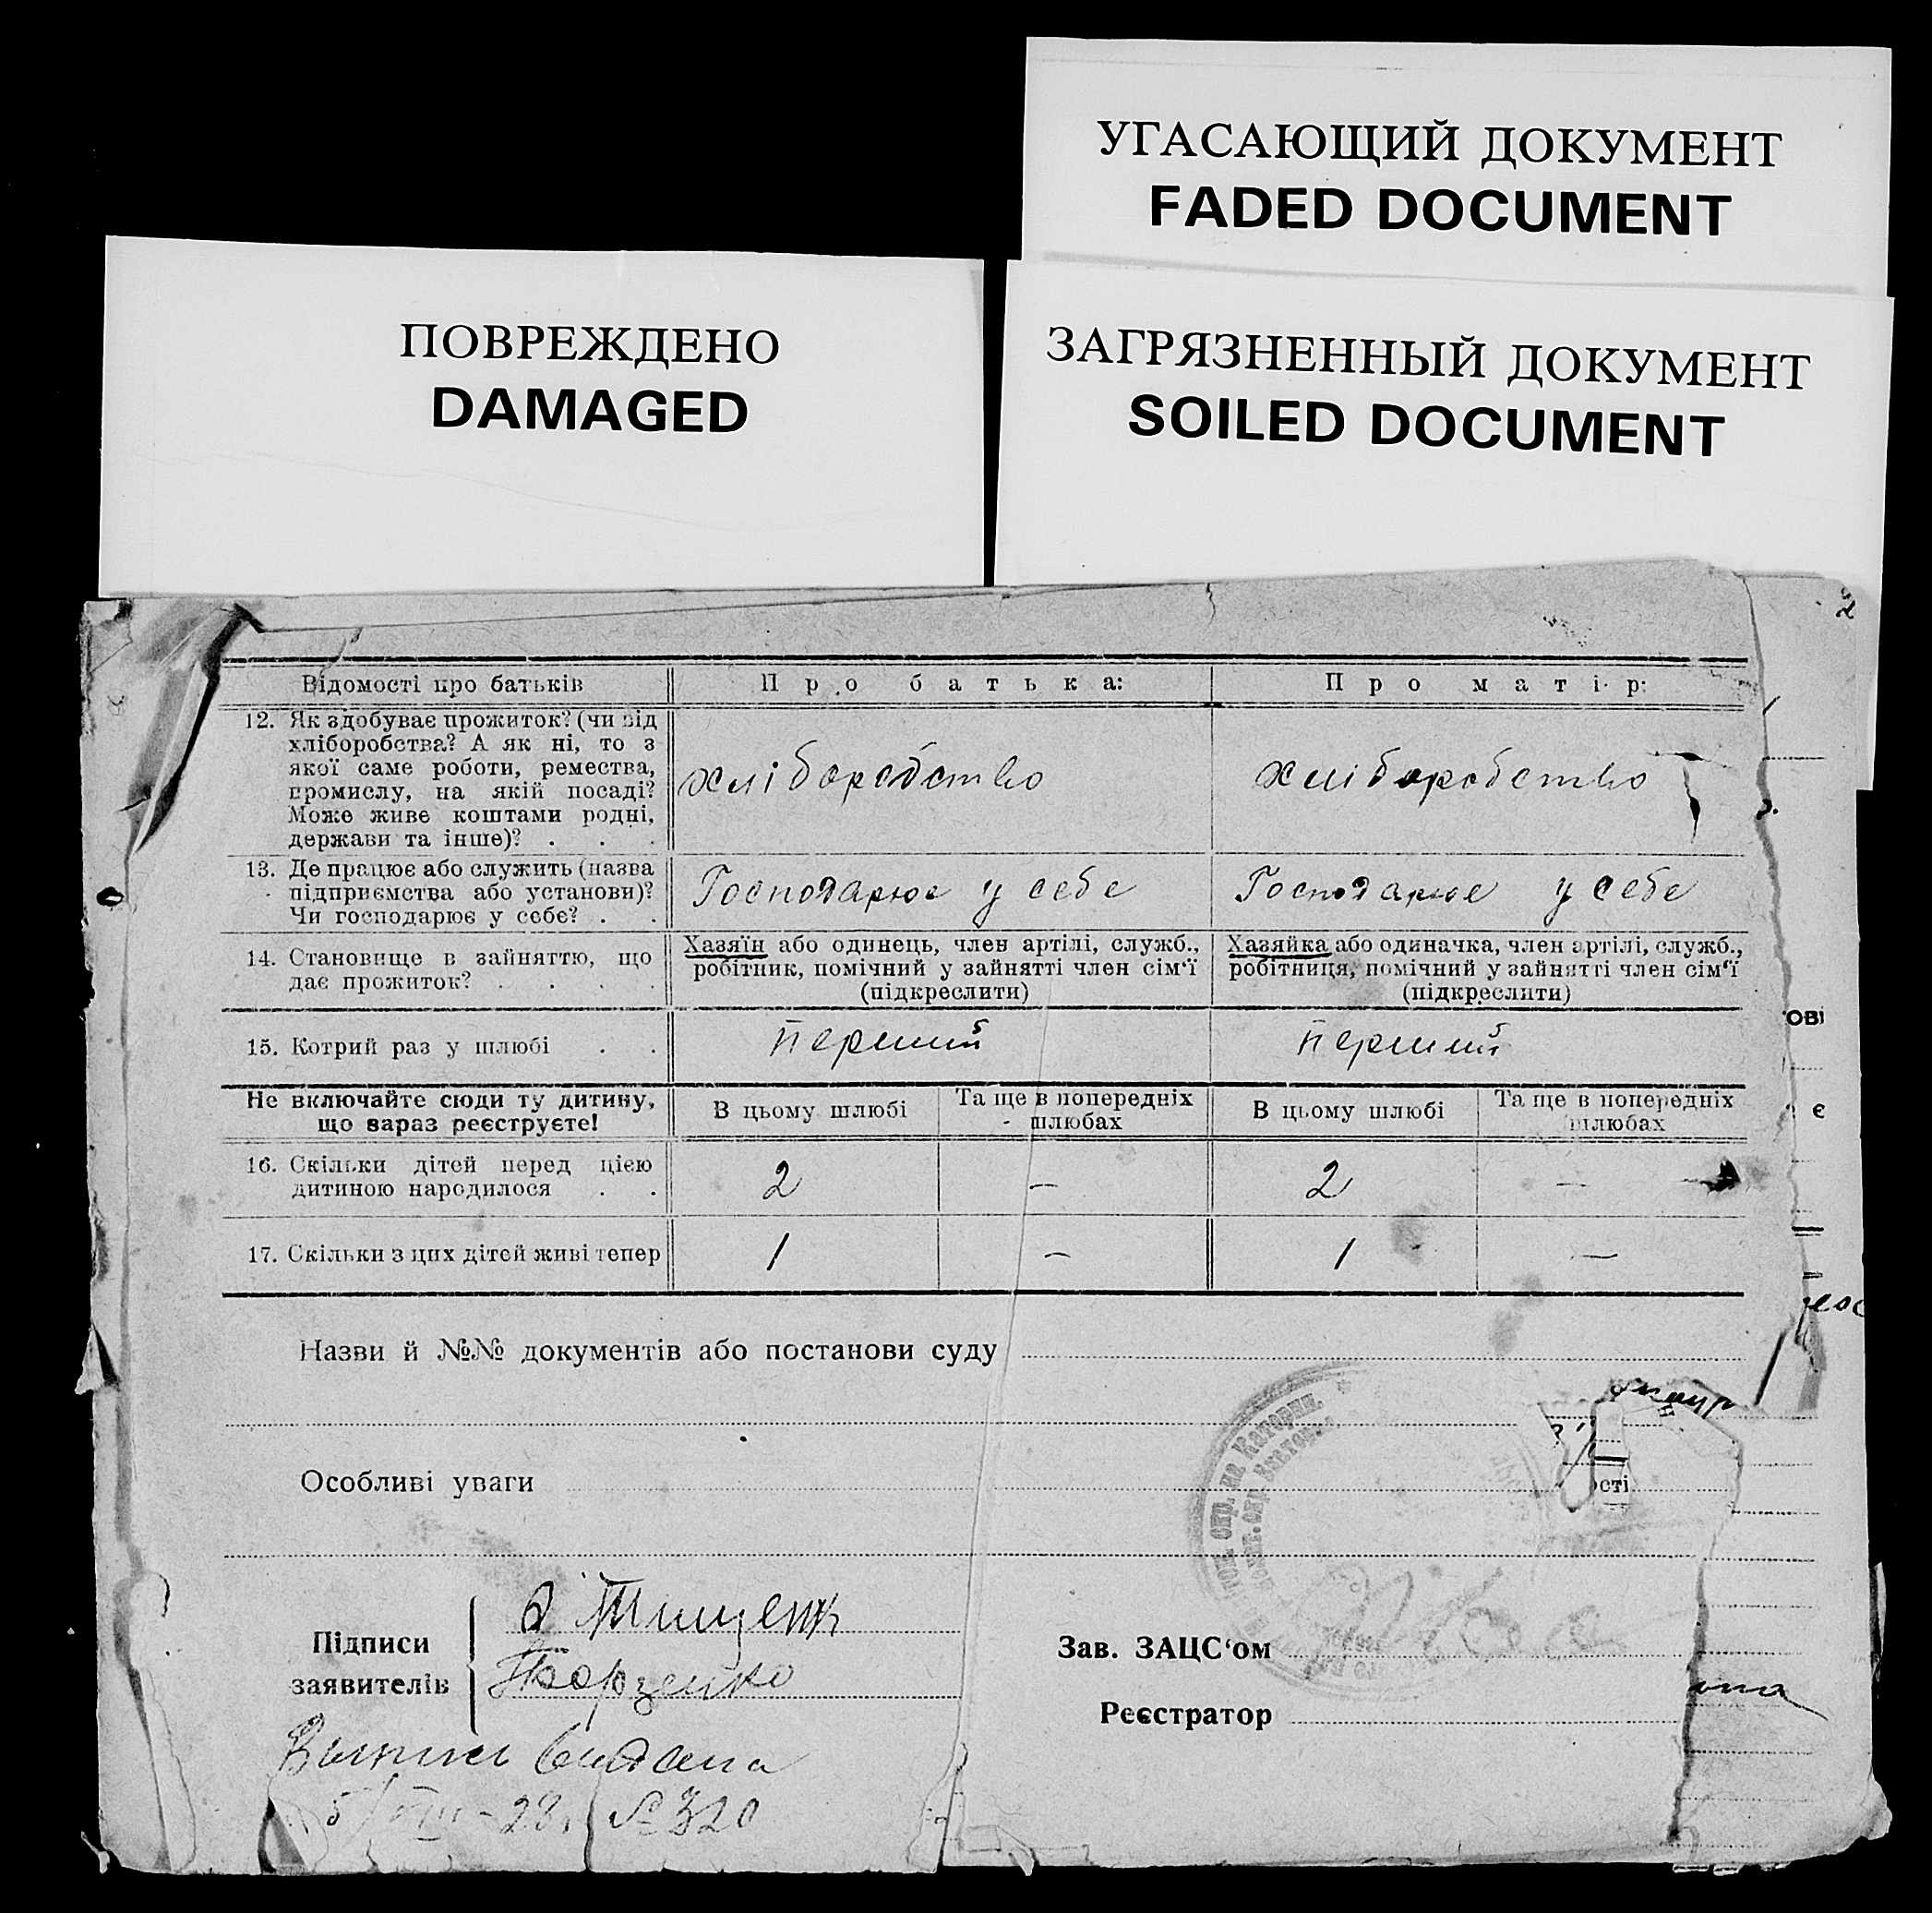 УГАСАЮЩИЙ ДОКУМЕНТ
FADED DOCUMENT
ПОВРЕЖДЕНО
DAMAGED
ЗАГРЯЗНЕННЫЙ ДОКУМЕНТ
SOILED DOCUMENT
2
Відомості про батьків
Про батька:
Про матір:
12. Як здобуває прожиток? (чи від
хліборобства? А як ні, то з
якої саме роботи, ремества,
промислу, на якій посаді?
Може живе коштами родні,
держави та інше)? . . .
хліборобство
хліборобство
13. Де працює або служить (назва
підприємства або установи)?
Чи господарює у себе? . .
Господарює у себе
Господарює у себе
14. Становище в зайняттю, що
дає прожиток? . . . .
Хазяїн або одинець, член артілі, служб.,
робітник, помічний у зайнятті член сім'ї
(підкреслити)
Хазяйка або одиначка, член артілі, служб.,
робітниця, помічний у зайнятті член сім'ї
(підкреслити)
15. Котрий раз у шлюбі . .
перший
перший
Не включайте сюди ту дитину,
що зараз реєструєте!
В цьому шлюбі
Та ще в попередніх
шлюбах
В цьому шлюбі
Та ще в попередніх
шлюбах
16. Скільки дітей перед цією
дитиною народилося . .
2
—
2
—
17. Скільки з цих дітей живі тепер
1
—
1
—
ові
є
Назви й №№ документів або постанови суду
Особливі уваги
ості
Підписи
заявителів
Тищенк
Борзенко
Зав. ЗАЦС'ом
Реєстратор
Выпись выдана
5/VIII-28. № 320